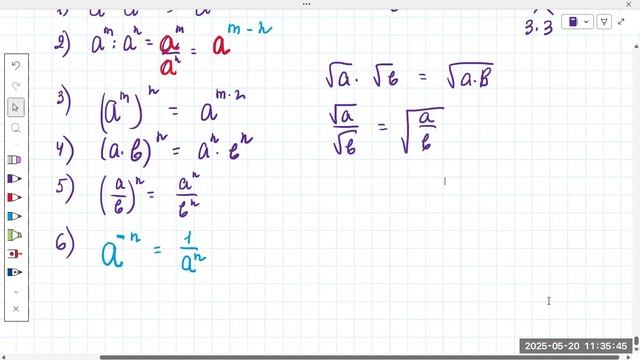 2) a^m : a^n = a^m/a^n = a^(m-n)
3) (a^m)^n = a^(m·n)
4) (a·b)^n = a^n · b^n
5) (a/b)^n = a^n/b^n
6) a^(-n) = 1/a^n
3·3
√a · √b = √(a·b)
√a/√b = √(a/b)
2025-05-20 11:35:45